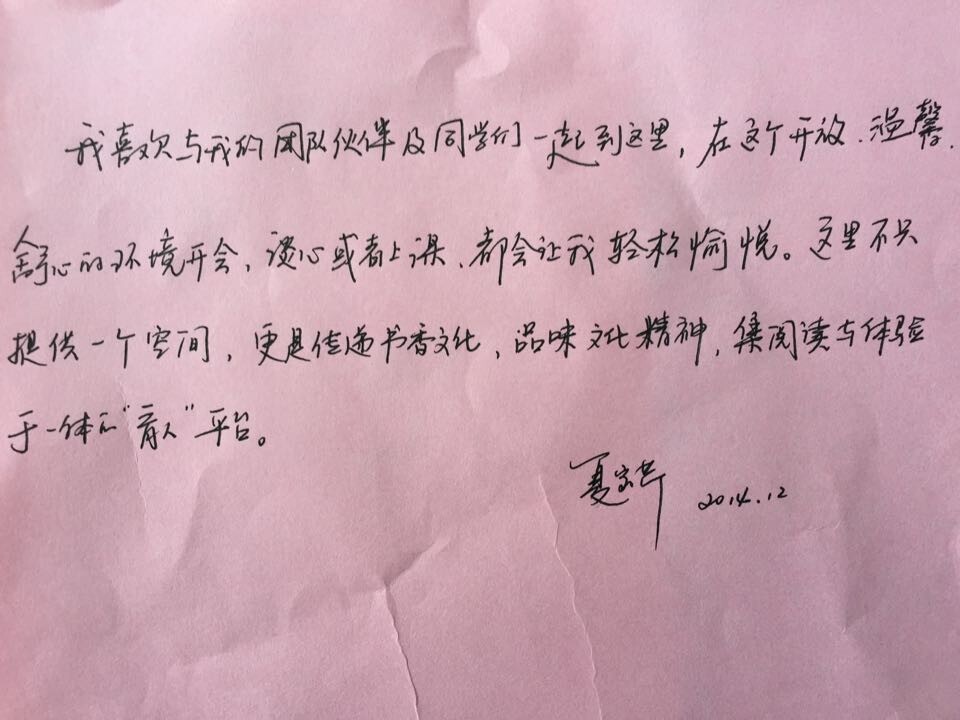 我喜欢与我的团队伙伴及同学们一起到这里，在这个开放、温馨、
舒心的环境开会、谈心或者上课、都会让我轻松愉悦。这里不只
提供一个空间，更是传递书香文化、品味文化精神，集阅读与体验
于一体的“育人”平台。
夏 2014.12